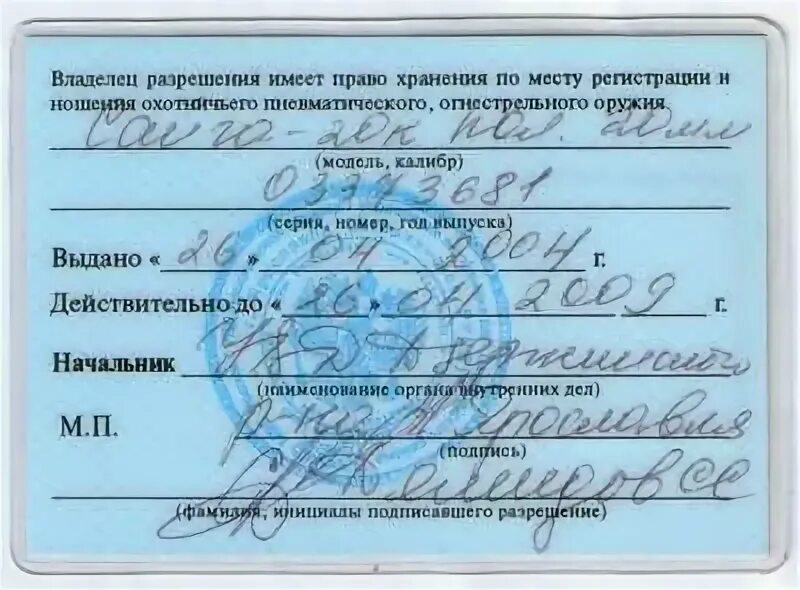 Владелец разрешения имеет право хранения по месту регистрации и
ношения охотничьего пневматического, огнестрельного оружия
Сайга-20к кал. 20мм
(модель, калибр)
03773681
(серия, номер, год выпуска)
Выдано «26» 04 2004 г.
Действительно до «26» 04 2009 г.
Начальник УВД Дзержинского
(наименование органа внутренних дел)
М.П. р-на г. Ярославля
(подпись)
(фамилия, инициалы подписавшего разрешение)